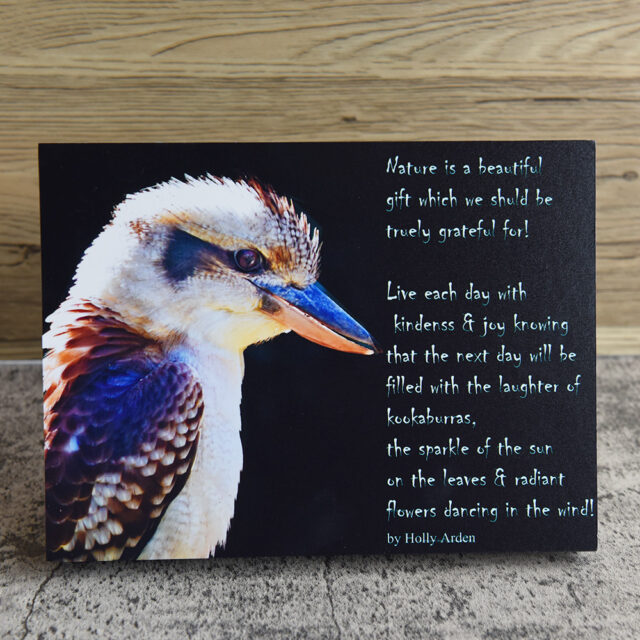 Nature is a beautiful
gift which we shuld be
truely grateful for!
Live each day with
kindenss & joy knowing
that the next day will be
filled with the laughter of
kookaburras,
the sparkle of the sun
on the leaves & radiant
flowers dancing in the wind!
by Holly Arden